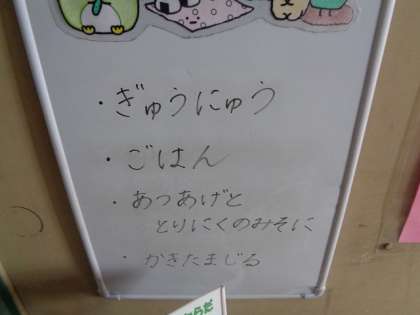 ・ぎゅうにゅう
・ごはん
・あつあげと
とりにくのみそに
・かきたまじる
からだ